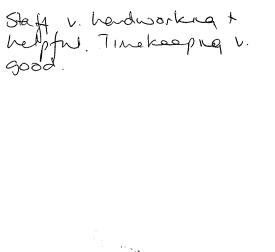 Staff v. hardworking +
helpful. Timekeeping v.
good.